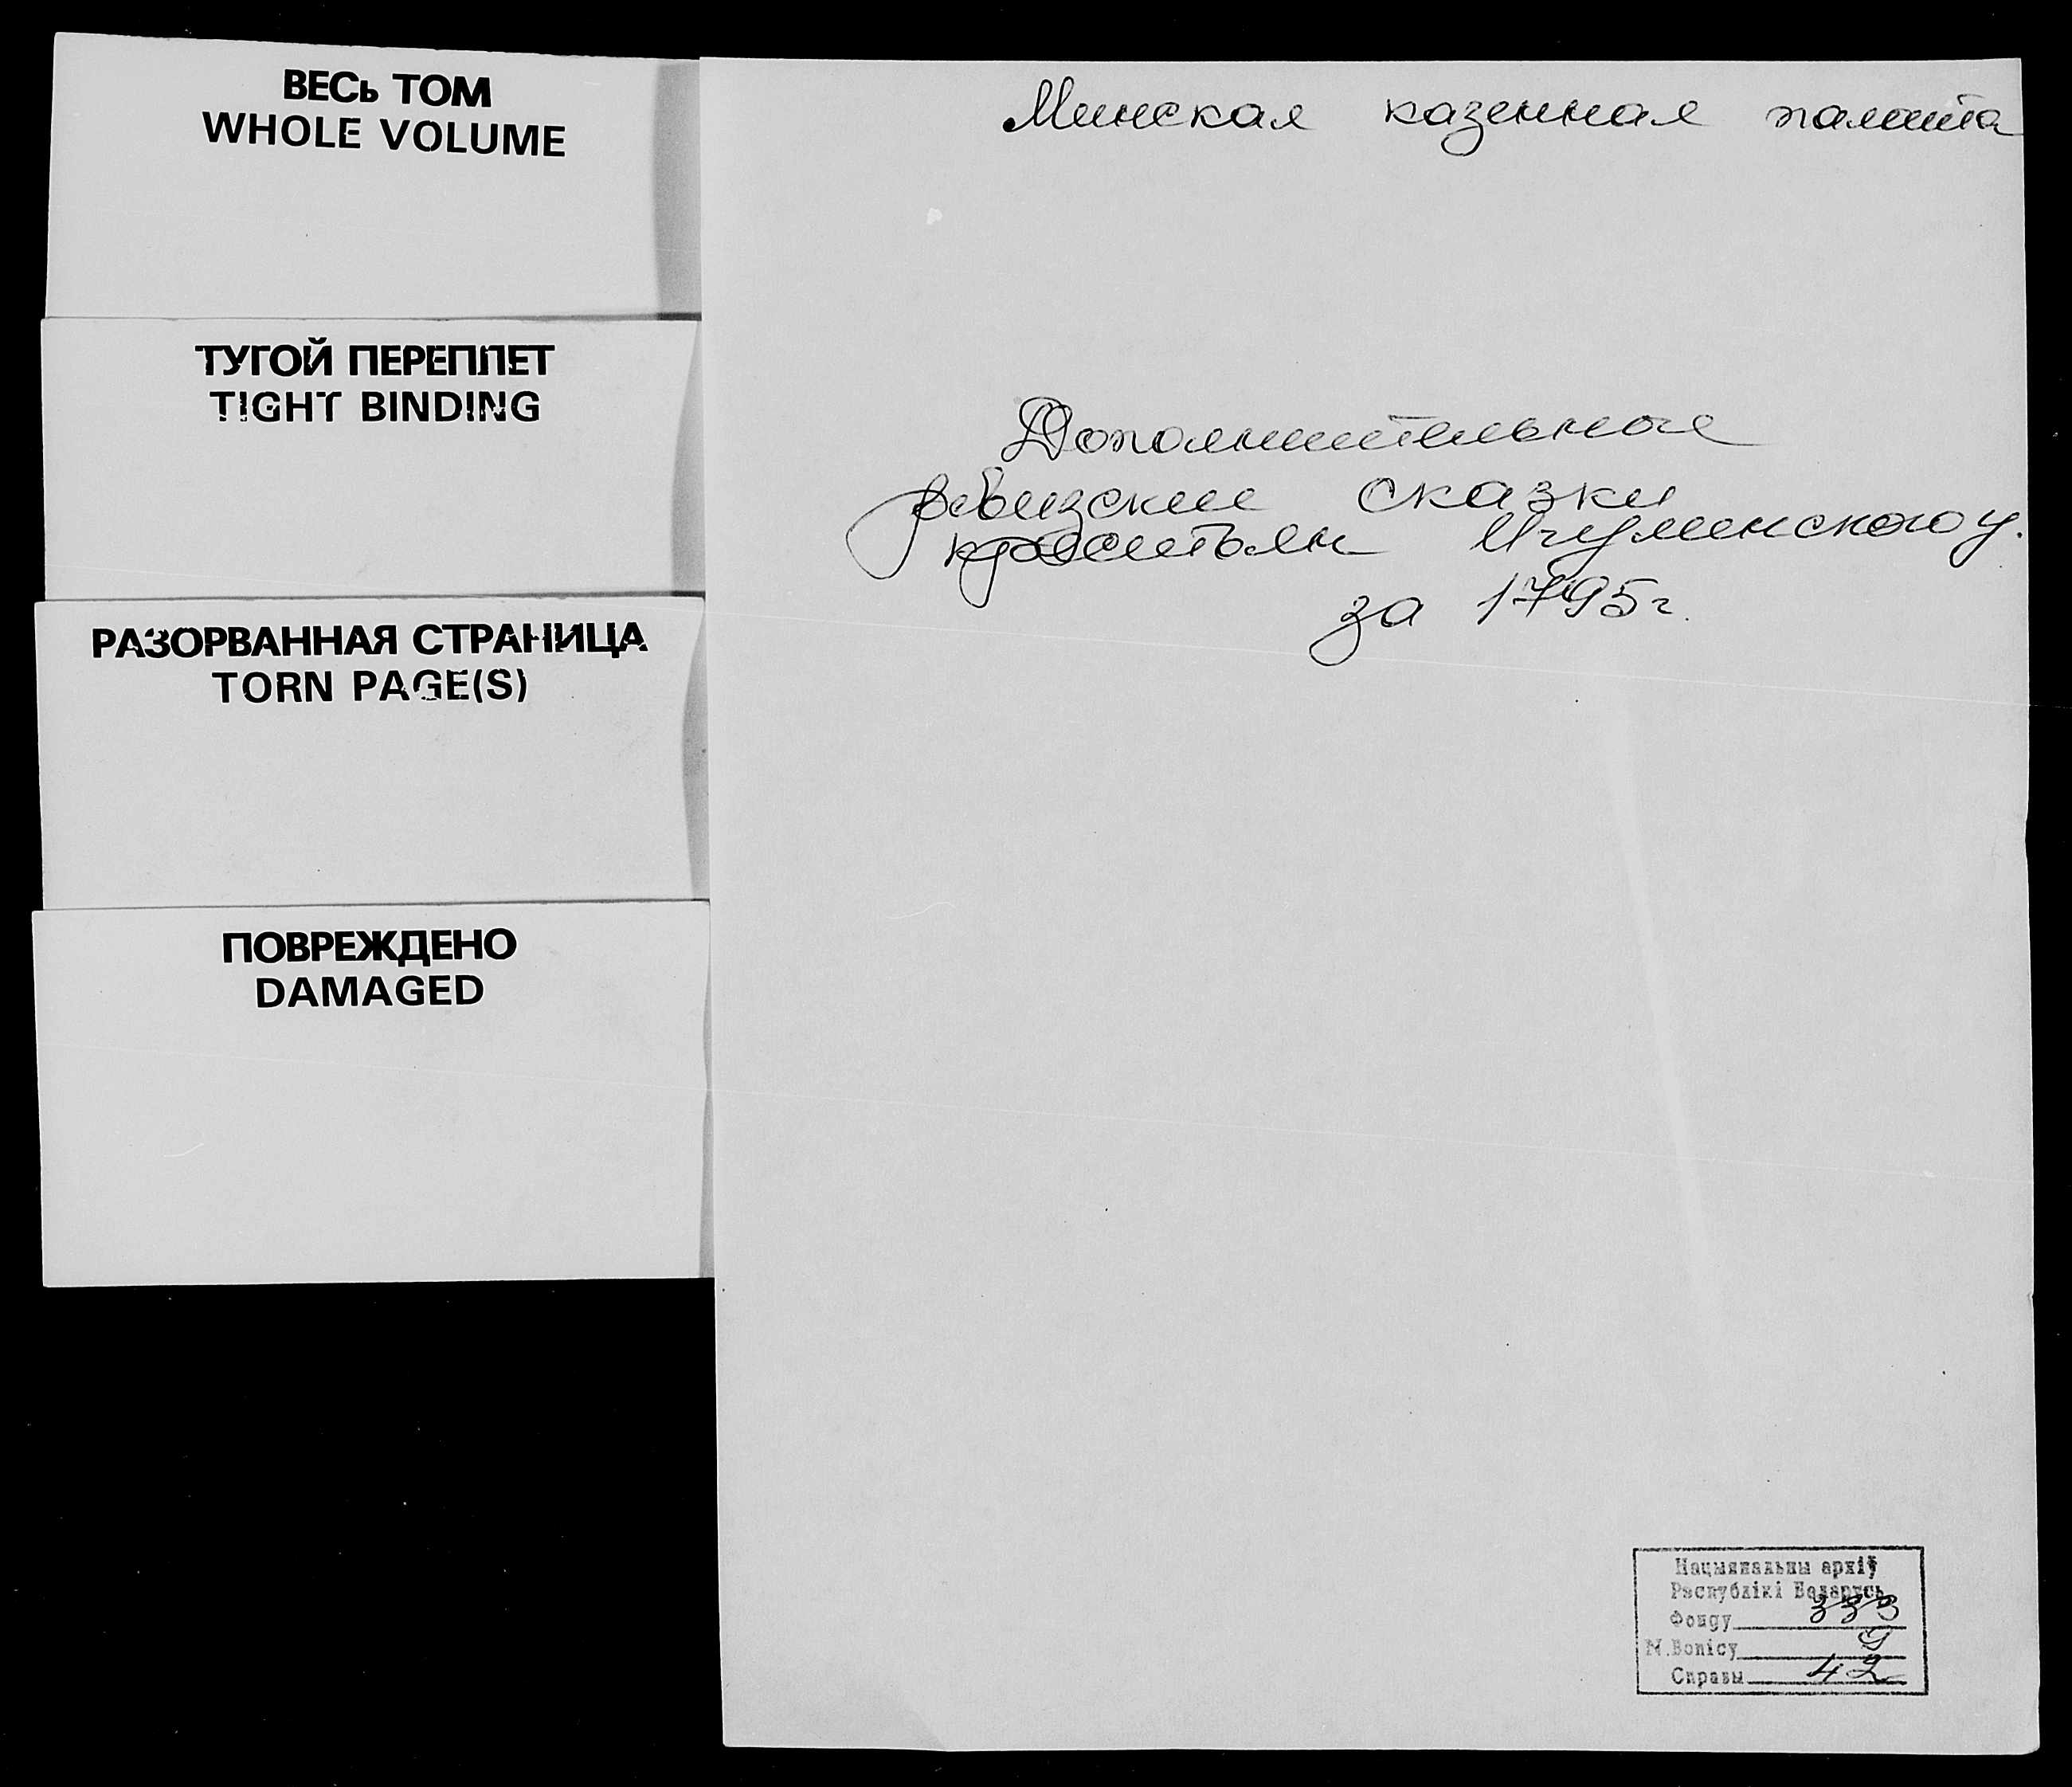 ВЕСЬ ТОМ
WHOLE VOLUME
ТУГОЙ ПЕРЕПЛЕТ
TIGHT BINDING
РАЗОРВАННАЯ СТРАНИЦА
TORN PAGE(S)
ПОВРЕЖДЕНО
DAMAGED
Минская казенная палата
Дополнительные
ревизские сказки
крестьян Игуменского у.
за 1795 г.
Нацыянальны архіў
Рэспублікі Беларусь
Фонду 333
N.Вопісу 9
Справы 42